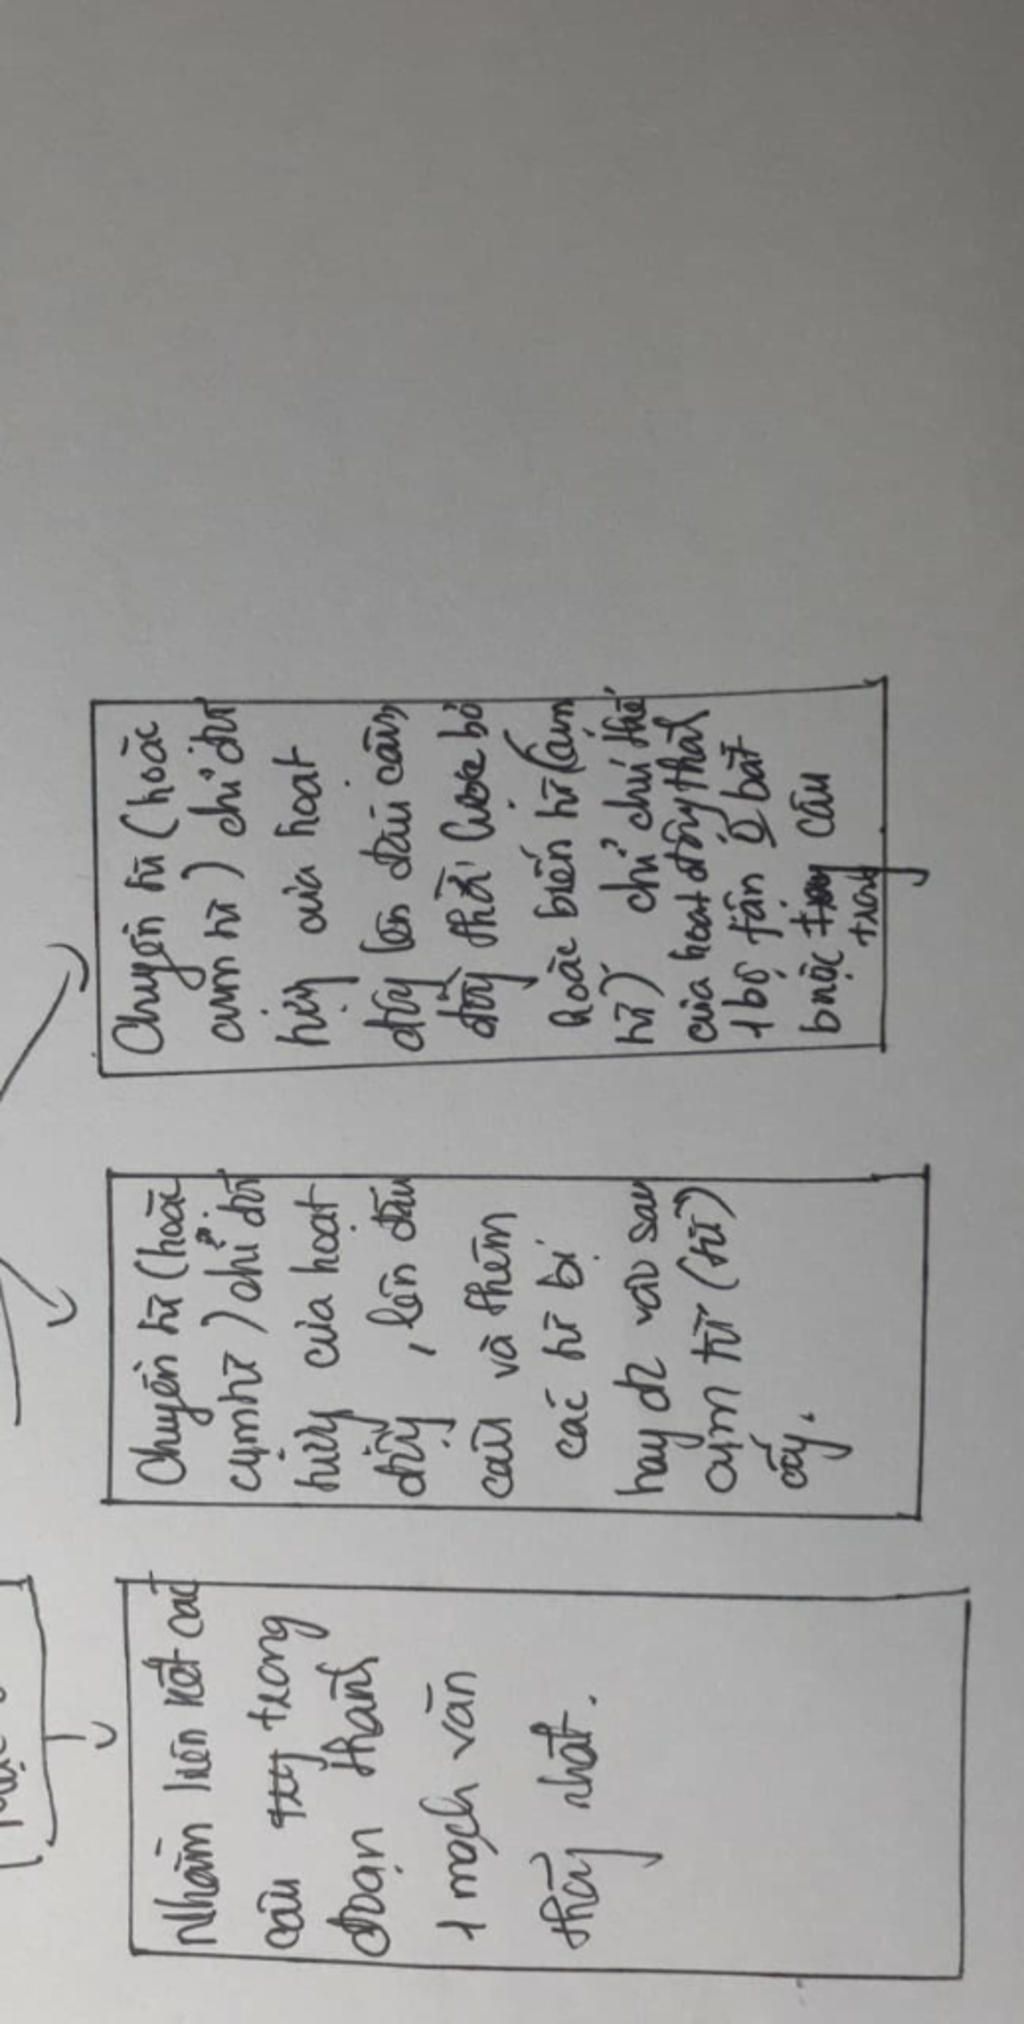 Nhằm liên kết các
câu trong
đoạn thành
1 mạch văn
thống nhất.
Chuyển từ (hoặc
cụm từ) chỉ đối
tượng của hoạt
động, lên đầu
câu và thêm
các từ bị
hay đc vào sau
cụm từ (từ)
ấy.
Chuyển từ (hoặc
cụm từ) chỉ đối
tượng của hoạt
động lên đầu câu,
đồng thời lược bỏ
hoặc biến từ (cụm
từ) chỉ chủ thể
của hoạt động thành
1 bộ phận k bắt
buộc trong câu